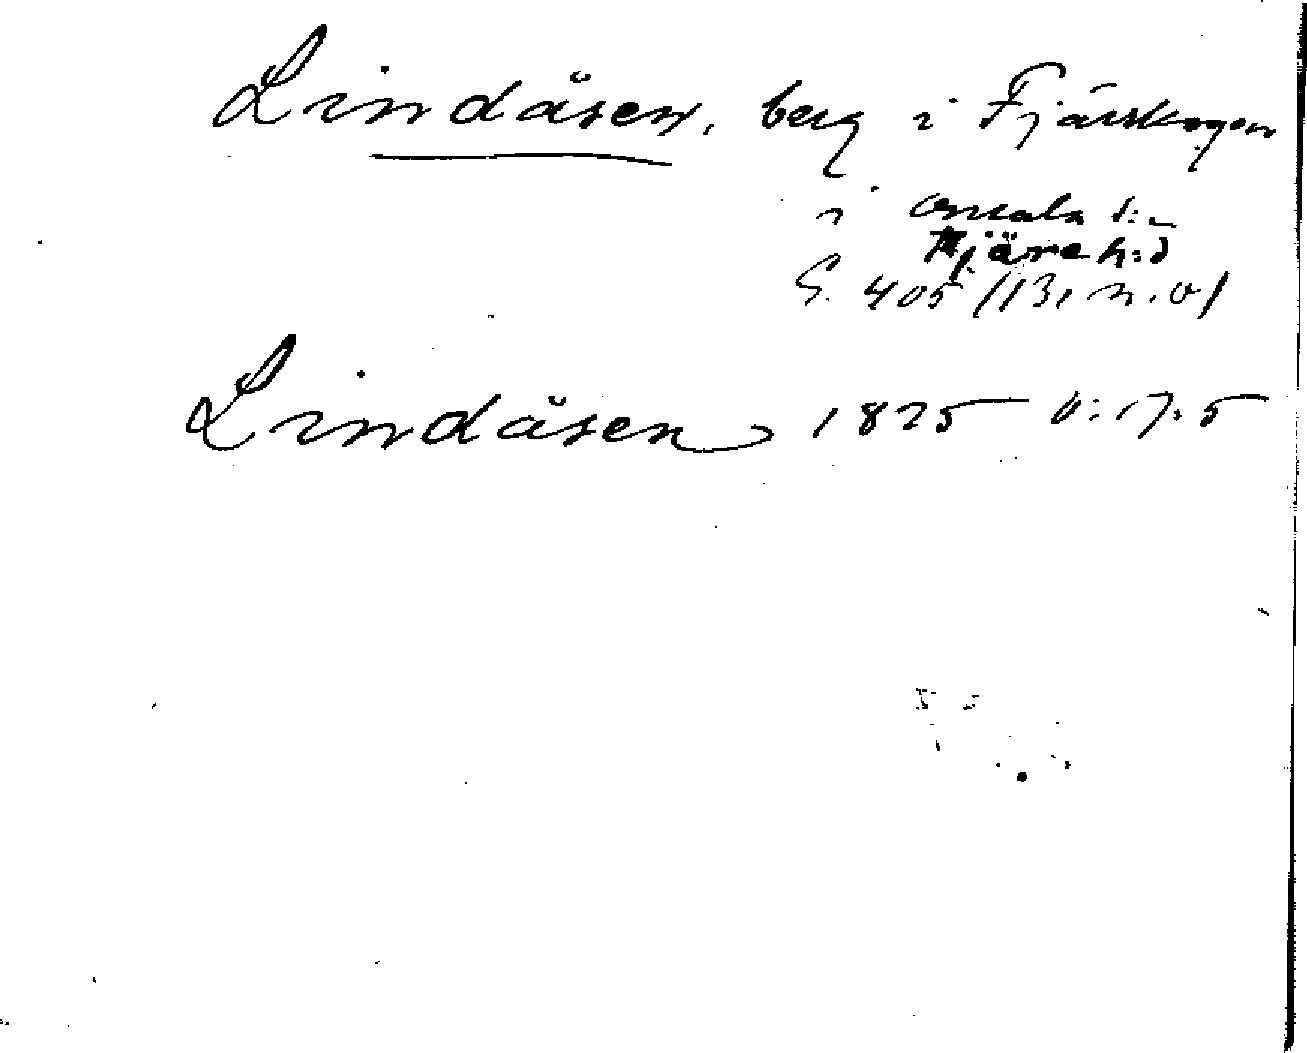 Lindåsen, berg i Fjärskogen
i Onsala s:n
Fjäre h:d
S. 405 (13, n. v)
Lindåsen 1825 v: 17: 5